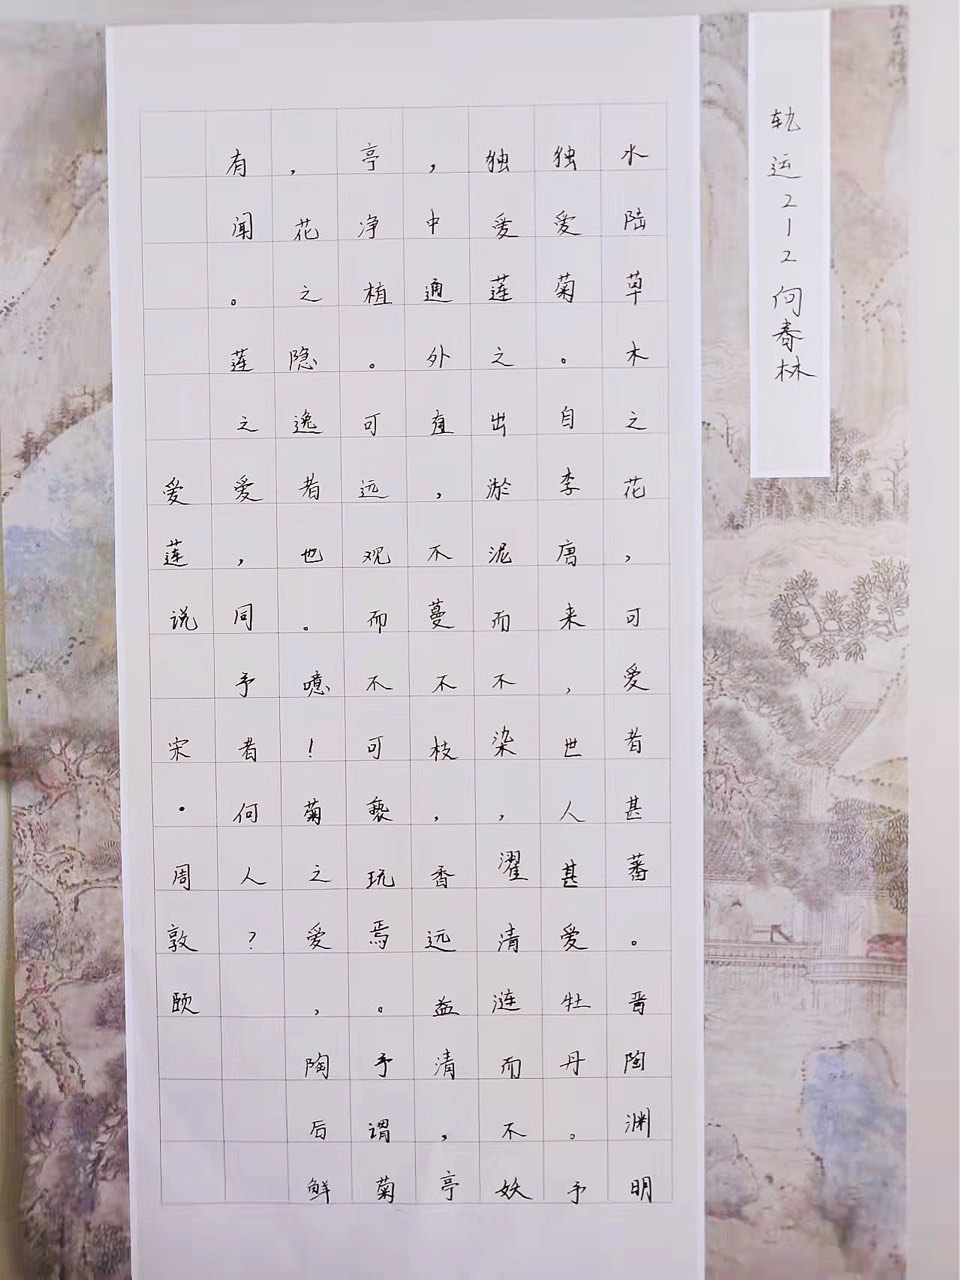 轨运212何春林
水陆草木之花，可爱者甚蕃。晋陶渊明
独爱菊。自李唐来，世人甚爱牡丹。予
独爱莲之出淤泥而不染，濯清涟而不妖
，中通外直，不蔓不枝，香远益清，亭
亭净植。可远观而不可亵玩焉。予谓菊
，花之隐逸者也。噫！菊之爱，陶后鲜
有闻。莲之爱，同予者何人？
爱莲说 宋·周敦颐